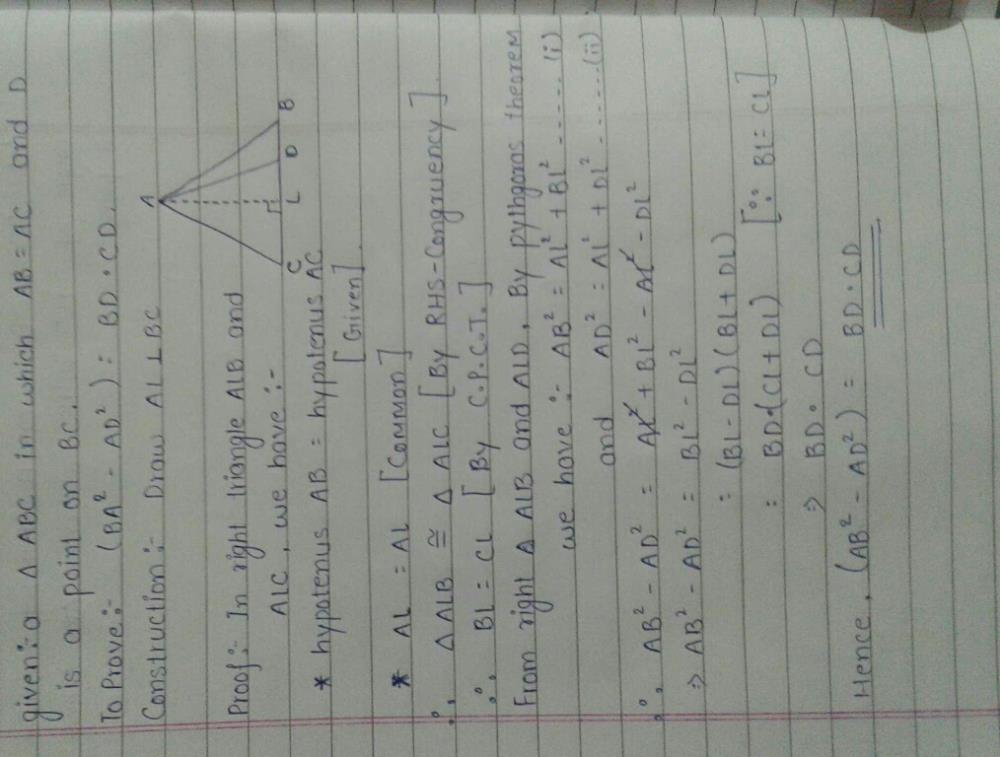 given:- a Δ ABC in which AB = AC and D
is a point on BC.
To Prove:- (BA² - AD²) = BD · CD.
Construction:- Draw AL ⊥ BC
A
C L D B
Proof:- In right triangle ALB and
ALC, we have :-
* hypotenus AB = hypotenus AC
[Given]
* AL = AL [Common]
∴ Δ ALB ≅ Δ ALC [By RHS-Congruency]
∴ BL = CL [By C.P.C.T.]
From right Δ ALB and ALD, By pythgoras theorem
we have :- AB² = AL² + BL² ...... (i)
and AD² = AL² + DL² .......(ii)
∴ AB² - AD² = AL² + BL² - AL² - DL²
⇒ AB² - AD² = BL² - DL²
= (BL - DL) (BL + DL)
= BD·(CL + DL) [∵ BL = CL]
⇒ BD · CD
Hence, (AB² - AD²) = BD · CD